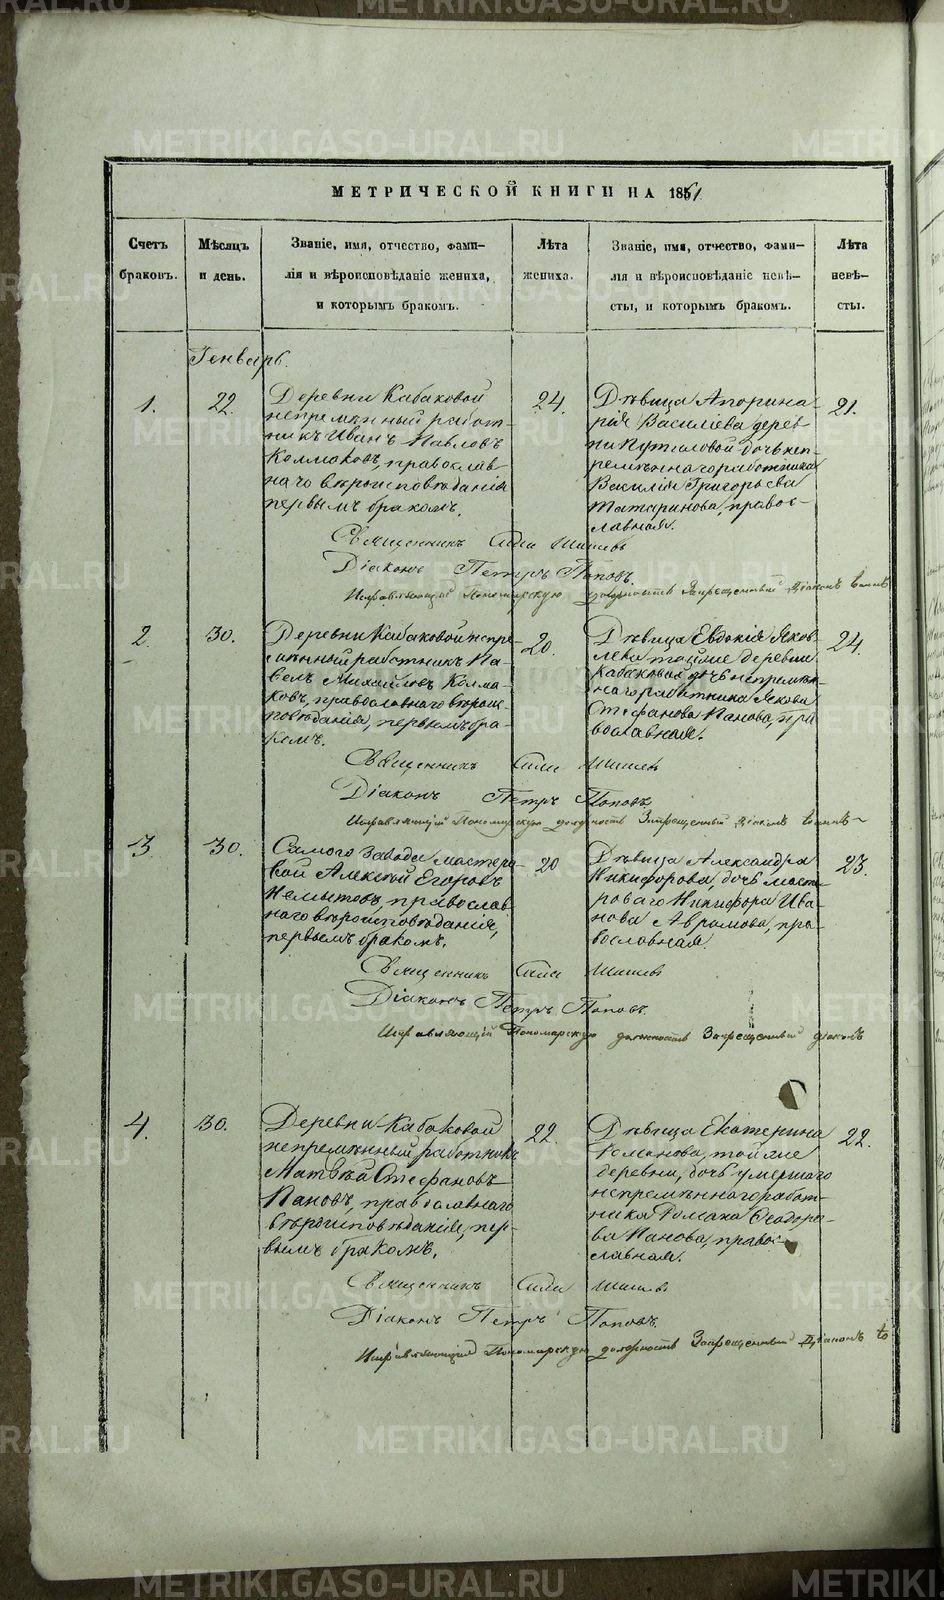 МЕТРИЧЕСКОЙ КНИГИ НА 1861
Счетъ браковъ.
Мѣсяцъ и день.
Званіе, имя, отчество, фами-
лія и вѣроисповѣданіе жениха,
и которымъ бракомъ.
Лѣта жениха.
Званіе, имя, отчество, фами-
лія и вѣроисповѣданіе невѣ-
сты, и которымъ бракомъ.
Лѣта невѣ-
сты.
Генварь.
1.
22
Деревни Кабаковой
непремѣнный работ-
никъ Иванъ Павловъ
Колмаковъ, православ-
наго вѣроисповѣданія
первымъ бракомъ.
24.
Дѣвица Апорина-
рія Василіева дерев-
ни Путиловой дочь неп-
ремѣннаго работника
Василія Григорьева
Татаринова, правос-
лавная.
21.
Священникъ Сила Шишевъ
Діаконъ Петръ Поповъ.
Исправляющій Пономарскую должность Запрещенный Діаконъ
2.
30.
Деревни Кабаковой непре-
мѣнный работникъ Па-
велъ Михайловъ Колма-
ковъ, православнаго вѣроис-
повѣданія, первымъ бра-
комъ.
20.
Дѣвица Евдокія Яков-
лева тойже деревни
Кабаковой дочь непремѣн-
наго работника Якова
Стефанова Панова, пра-
вославная.
24.
Священникъ Сила Шишевъ
Діаконъ Петръ Поповъ
Исправляющій Пономарскую должность Запрещенный Діаконъ
3.
30.
Самого Завода мастеро-
вой Алексѣй Егоровъ
Немытовъ, православ-
наго вѣроисповѣданія,
первымъ бракомъ.
20
Дѣвица Александра
Никифорова, дочь масте-
роваго Никифора Ива-
нова Аврамова, пра-
вославная.
23.
Священникъ Сила Шишевъ
Діаконъ Петръ Поповъ.
Исправляющій Пономарскую должность Запрещенный діаконъ
4.
30.
Деревни Кабаковой
непремѣнный работникъ
Матвѣй Стефановъ
Пановъ, православнаго
вѣроисповѣданія, пер-
вымъ бракомъ.
22.
Дѣвица Екатерина
Романова, той же
деревни, дочь умершаго
непремѣннаго работ-
ника Романа Ѳеодоро-
ва Панова, правос-
лавная.
22.
Священникъ Сила Шишевъ
Діаконъ Петръ Поповъ.
Исправляющій Пономарскую должность Запрещенный Діаконъ
METRIKI.GASO-URAL.RU